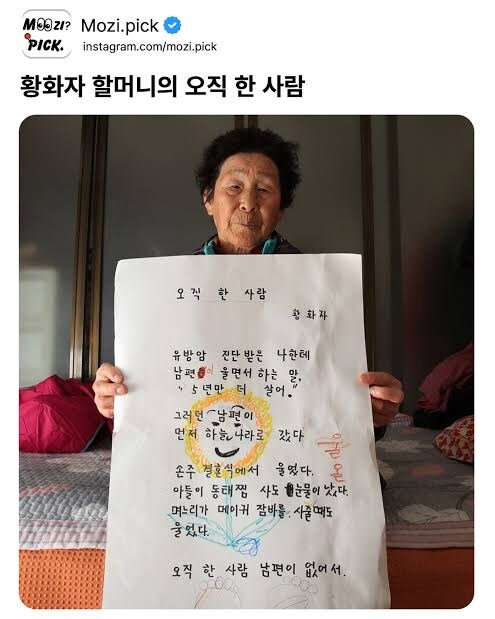 MOOZI?
PICK.
Mozi.pick
instagram.com/mozi.pick
황화자 할머니의 오직 한 사람
오직 한 사람
황화자
유방암 진단받은 나한테
남편이 울면서 하는 말,
"5년만 더 살어."
그러던 남편이
먼저 하늘나라로 갔다
손주 결혼식에서 울었다.
아들이 동태찜 사도 눈물이 났다.
며느리가 메이커 잠바를 사줄때도
울었다.
오직 한 사람 남편이 없어서.